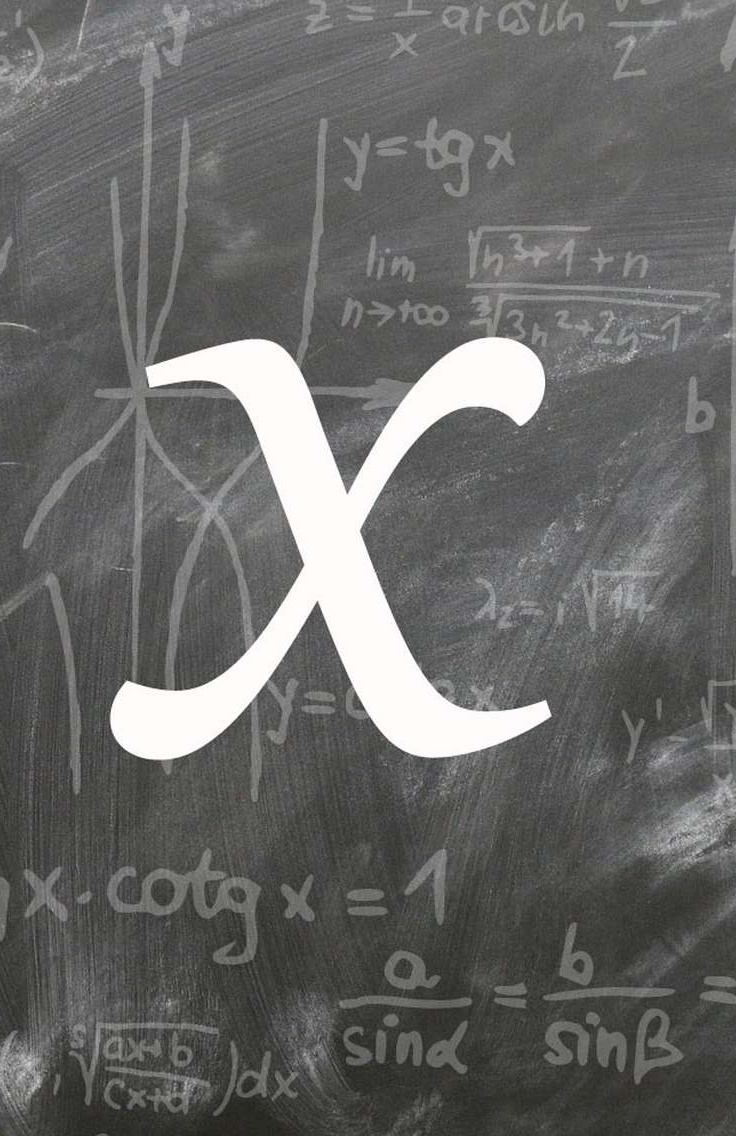 y
z = 1/x arcsin
2
y = tg x
lim n→+∞ √(n³+1) + n / ∛(3n²+2n-1)
b
x
λ₂ =
y =
y' =
x · cotg x = 1
a/sinα = b/sinβ =
⁵√(ax+b / cx+d) )dx